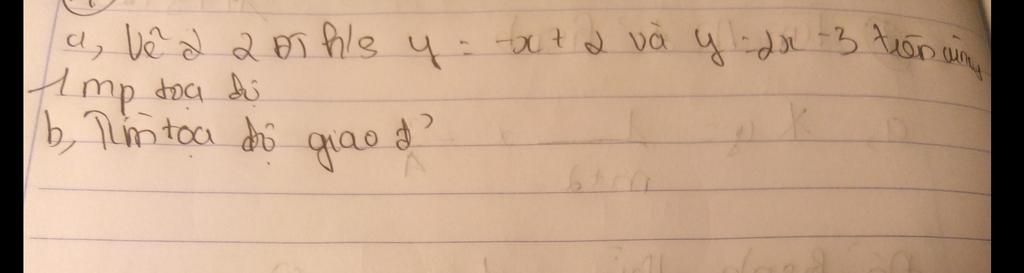 a, Vẽ 2 ĐT h/s y = -x + 2 và y = 2x - 3 trên cùng
1 mp tọa độ
b, Tìm tọa độ giao đ'